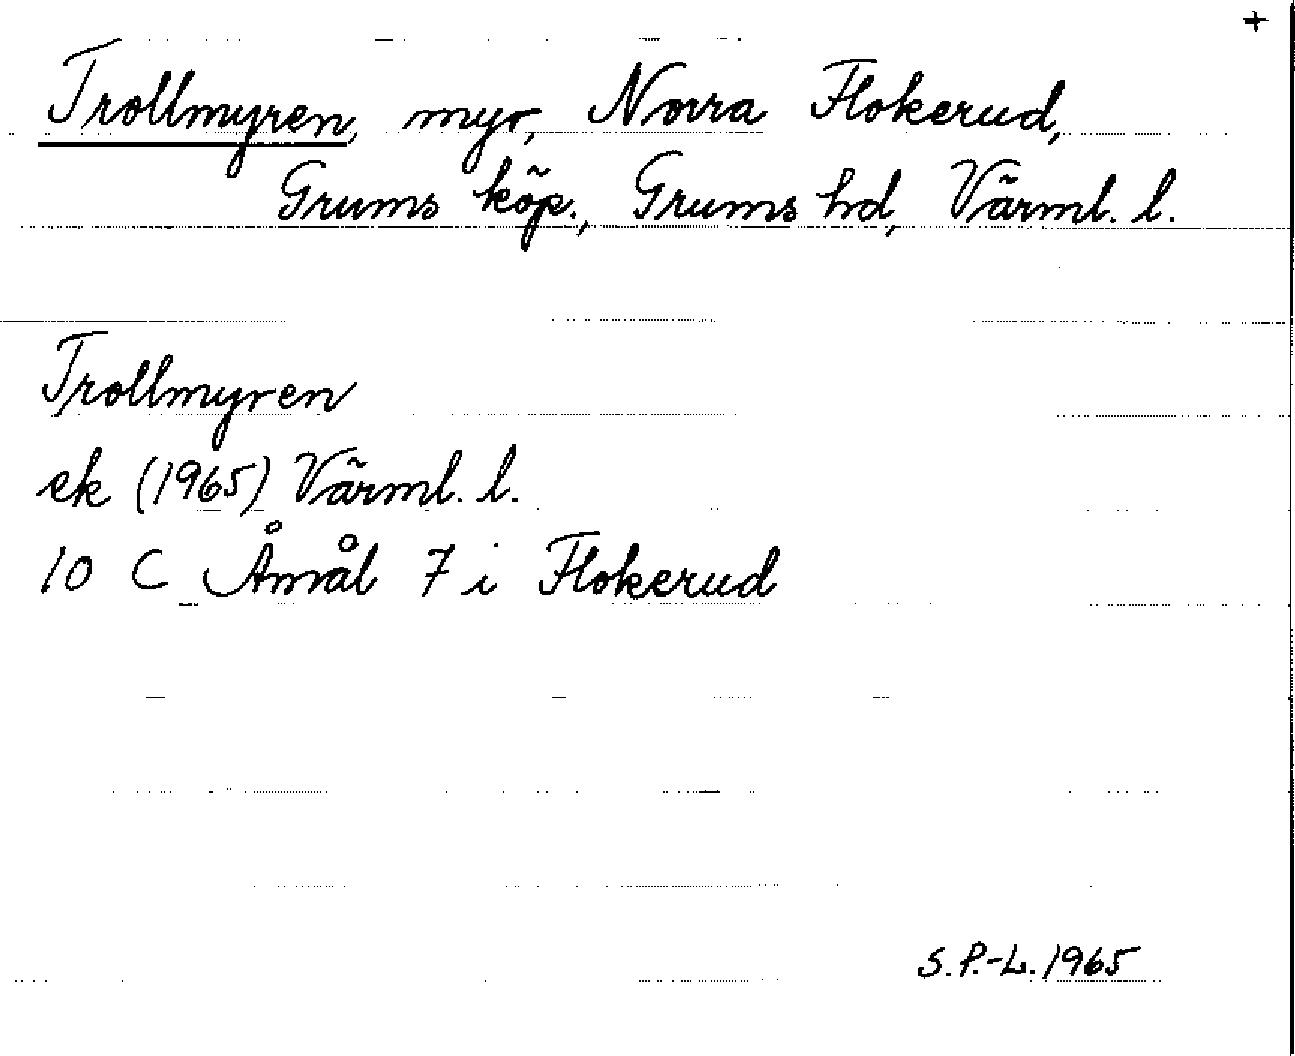 +
Trollmyren, myr, Norra Flokerud,
Grums köp., Grums hd, Värml. l.
Trollmyren
ek (1965) Värml. l.
10 C Åmål 7 i Flokerud
S. P.-L. 1965